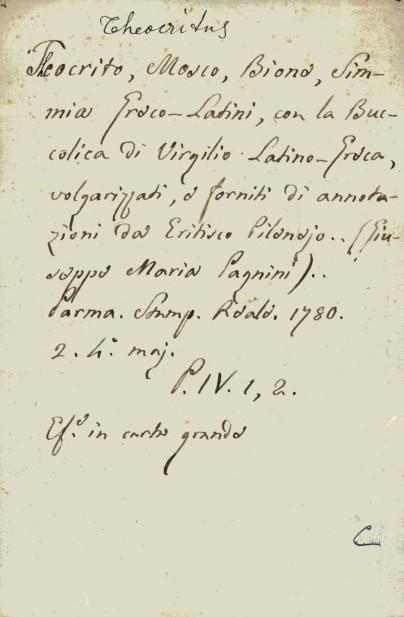 Theocritus
Teocrito, Mosco, Bione, Sim-
mia Greco-Latini, con la Buc-
colica di Virgilio Latino-Greca,
volgarizzati, e forniti di annota-
zioni da Eritisco Pilenejo.. (Giu-
seppe Maria Pagnini)..
Parma. Stamp. Reale. 1780.
2. 4.º maj.
P. IV. 1, 2.
Es.e in carta grande
C